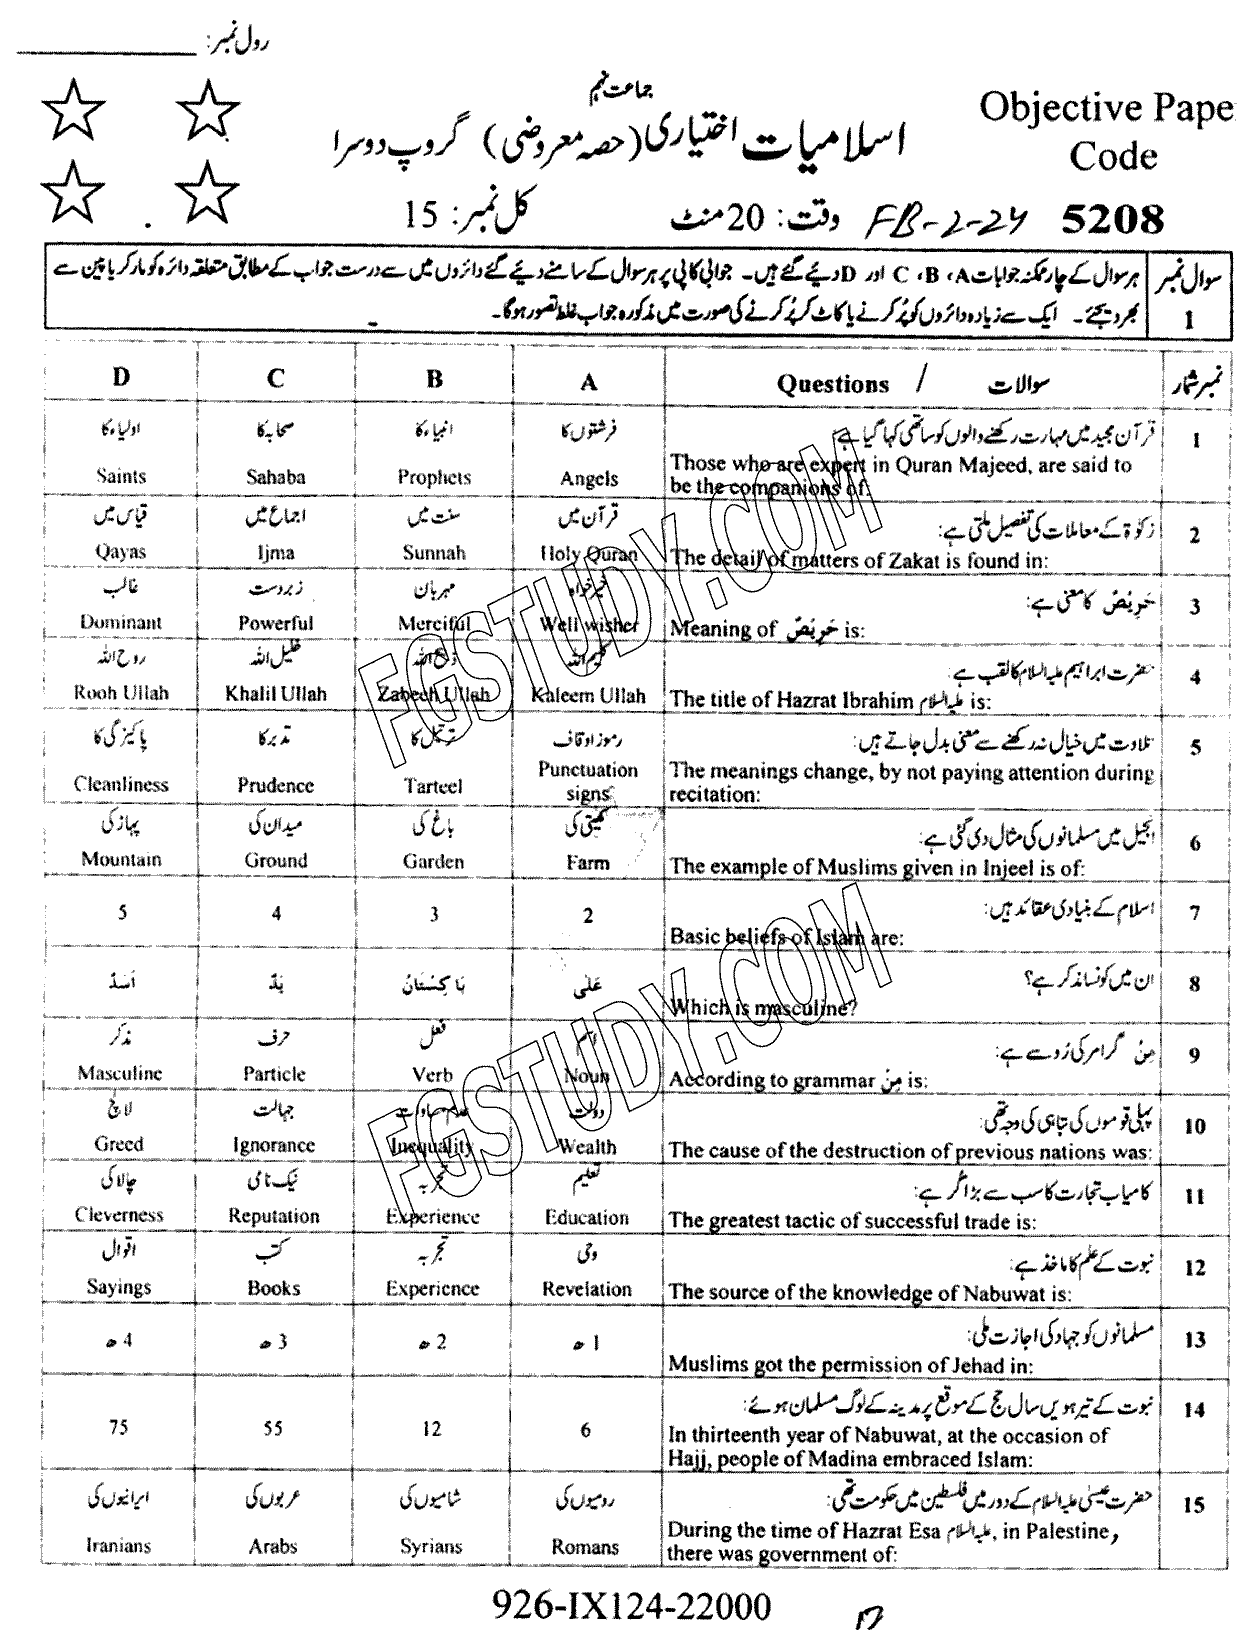 رول نمبر: ____________
جماعت نہم
Objective Pape
Code
اسلامیات اختیاری (حصہ معروضی) گروپ دوسرا
5208
FB-2-24
وقت: 20 منٹ
کل نمبر: 15
سوال نمبر 1
ہر سوال کے چار ممکنہ جوابات A، B، C اور D دیئے گئے ہیں۔ جوابی کاپی پر ہر سوال کے سامنے دیئے گئے دائروں میں سے درست جواب کے مطابق متعلقہ دائرہ کو مارکر یا پین سے
بھر دیجئے۔ ایک سے زیادہ دائروں کو پُر کرنے یا کاٹ کر پُر کرنے کی صورت میں مذکورہ جواب غلط تصور ہوگا۔
نمبر شمار سوالات / Questions A B C D
1 قرآن مجید میں مہارت رکھنے والوں کو ساتھی کہا گیا ہے: فرشتوں کا انبیاء کا صحابہ کا اولیاء کا
Those who are expert in Quran Majeed, are said to
be the companions of: Angels Prophets Sahaba Saints
2 زکوٰۃ کے معاملات کی تفصیل ملتی ہے: قرآن میں سنت میں اجماع میں قیاس میں
The detail of matters of Zakat is found in: Holy Quran Sunnah Ijma Qayas
3 حَرِیْصٌ کا معنی ہے: خیر خواہ مہربان زبردست غالب
Meaning of حَرِیْصٌ is: Well wisher Merciful Powerful Dominant
4 حضرت ابراہیم علیہ السلام کا لقب ہے: کلیم اللہ ذبیح اللہ خلیل اللہ روح اللہ
The title of Hazrat Ibrahim علیہ السلام is: Kaleem Ullah Zabeeh Ullah Khalil Ullah Rooh Ullah
5 تلاوت میں خیال نہ رکھنے سے معنی بدل جاتے ہیں: رموز اوقاف ترتیل کا تدبر کا پاکیزگی کا
The meanings change, by not paying attention during
recitation: Punctuation signs Tarteel Prudence Cleanliness
6 انجیل میں مسلمانوں کی مثال دی گئی ہے: کھیتی کی باغ کی میدان کی پہاڑ کی
The example of Muslims given in Injeel is of: Farm Garden Ground Mountain
7 اسلام کے بنیادی عقائد ہیں: 2 3 4 5
Basic beliefs of Islam are:
8 ان میں کونسا مذکر ہے؟ عَلٰی بَاکِسْتَانُ یَدٌ اَسَدٌ
Which is masculine?
9 مِنْ گرامر کی رُو سے ہے: اسم فعل حرف مذکر
According to grammar مِنْ is: Noun Verb Particle Masculine
10 پہلی قوموں کی تباہی کی وجہ تھی: دولت عدم مساوات جہالت لالچ
The cause of the destruction of previous nations was: Wealth Inequality Ignorance Greed
11 کامیاب تجارت کا سب سے بڑا گُر ہے: تعلیم تجربہ نیک نامی چالاکی
The greatest tactic of successful trade is: Education Experience Reputation Cleverness
12 نبوت کے علم کا ماخذ ہے: وحی تجربہ کتب اقوال
The source of the knowledge of Nabuwat is: Revelation Experience Books Sayings
13 مسلمانوں کو جہاد کی اجازت ملی: 1 ھ 2 ھ 3 ھ 4 ھ
Muslims got the permission of Jehad in:
14 نبوت کے تیرہویں سال حج کے موقع پر مدینہ کے لوگ مسلمان ہوئے: 6 12 55 75
In thirteenth year of Nabuwat, at the occasion of
Hajj, people of Madina embraced Islam:
15 حضرت عیسیٰ علیہ السلام کے دور میں فلسطین میں حکومت تھی: رومیوں کی شامیوں کی عربوں کی ایرانیوں کی
During the time of Hazrat Esa علیہ السلام, in Palestine,
there was government of: Romans Syrians Arabs Iranians
FGSTUDY.COM
FGSTUDY.COM
926-IX124-22000